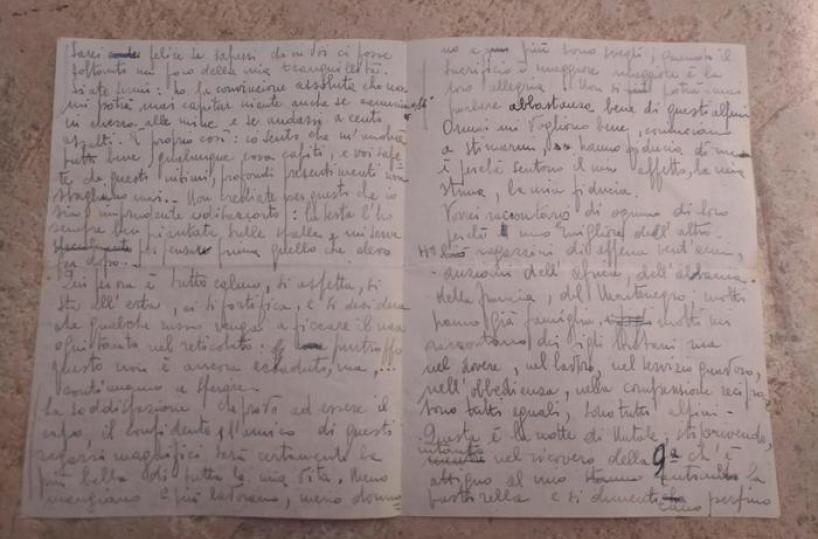 Sarei felice se sapessi da voi ci fosse
soltanto un poco della mia tranquillità.
Siate sereni: io ho la convinzione assoluta che non
mi potrà mai capitar niente anche se
in mezzo alle mine e se andassi a cento
assalti. È proprio così: io sento che
tutto bene, qualunque cosa capiti, e voi sape
te che questi intimi, profondi presentimenti non
sbagliano mai... Non crediate per questo che io
sia imprudente o : la testa l'ho
sempre ben piantata sulle spalle e mi serve
per pensare prima quello che devo
far dopo.
Qui per ora è tutto calmo, si aspetta, si
sta all'erta, ci si fortifica, e si desidera
che qualche russo venga a ficcare il naso
ogni tanto nel reticolato: purtroppo
questo non è ancora accaduto, ma, ...
continuiamo a sperare.
La soddisfazione che provo ad essere il
capo, il confidente, l'amico di questi
ragazzi magnifici sarà certamente la
più bella di tutta la mia vita. Meno
mangiano e più lavorano, meno dormo
no e più sono svegli, quando il
sacrificio è maggiore maggiore è la
loro allegria. Non si potrà mai
parlare abbastanza bene di questi alpini
Ormai mi vogliono bene, cominciano
a stimarmi, hanno fiducia di me
è perché sentono il mio affetto, la mia
stima, la mia fiducia.
Vorrei raccontarvi di ognuno di loro
perché uno migliore dell'altro.
Ho ragazzini di appena vent'anni,
anziani dell'Africa, dell'Albania
della Francia, del Montenegro, molti
hanno già famiglia, molti mi
raccontano dei figli lontani ma
nel dovere, nel lavoro, nel servizio gravoso,
nell'obbedienza, nella comprensione recipro
sono tutti eguali, sono tutti alpini -
Questa è la notte di Natale: sto scrivendo,
intanto nel ricovero della 9ª ch'è
attiguo al mio la
pastorella e si dimenticano perfino